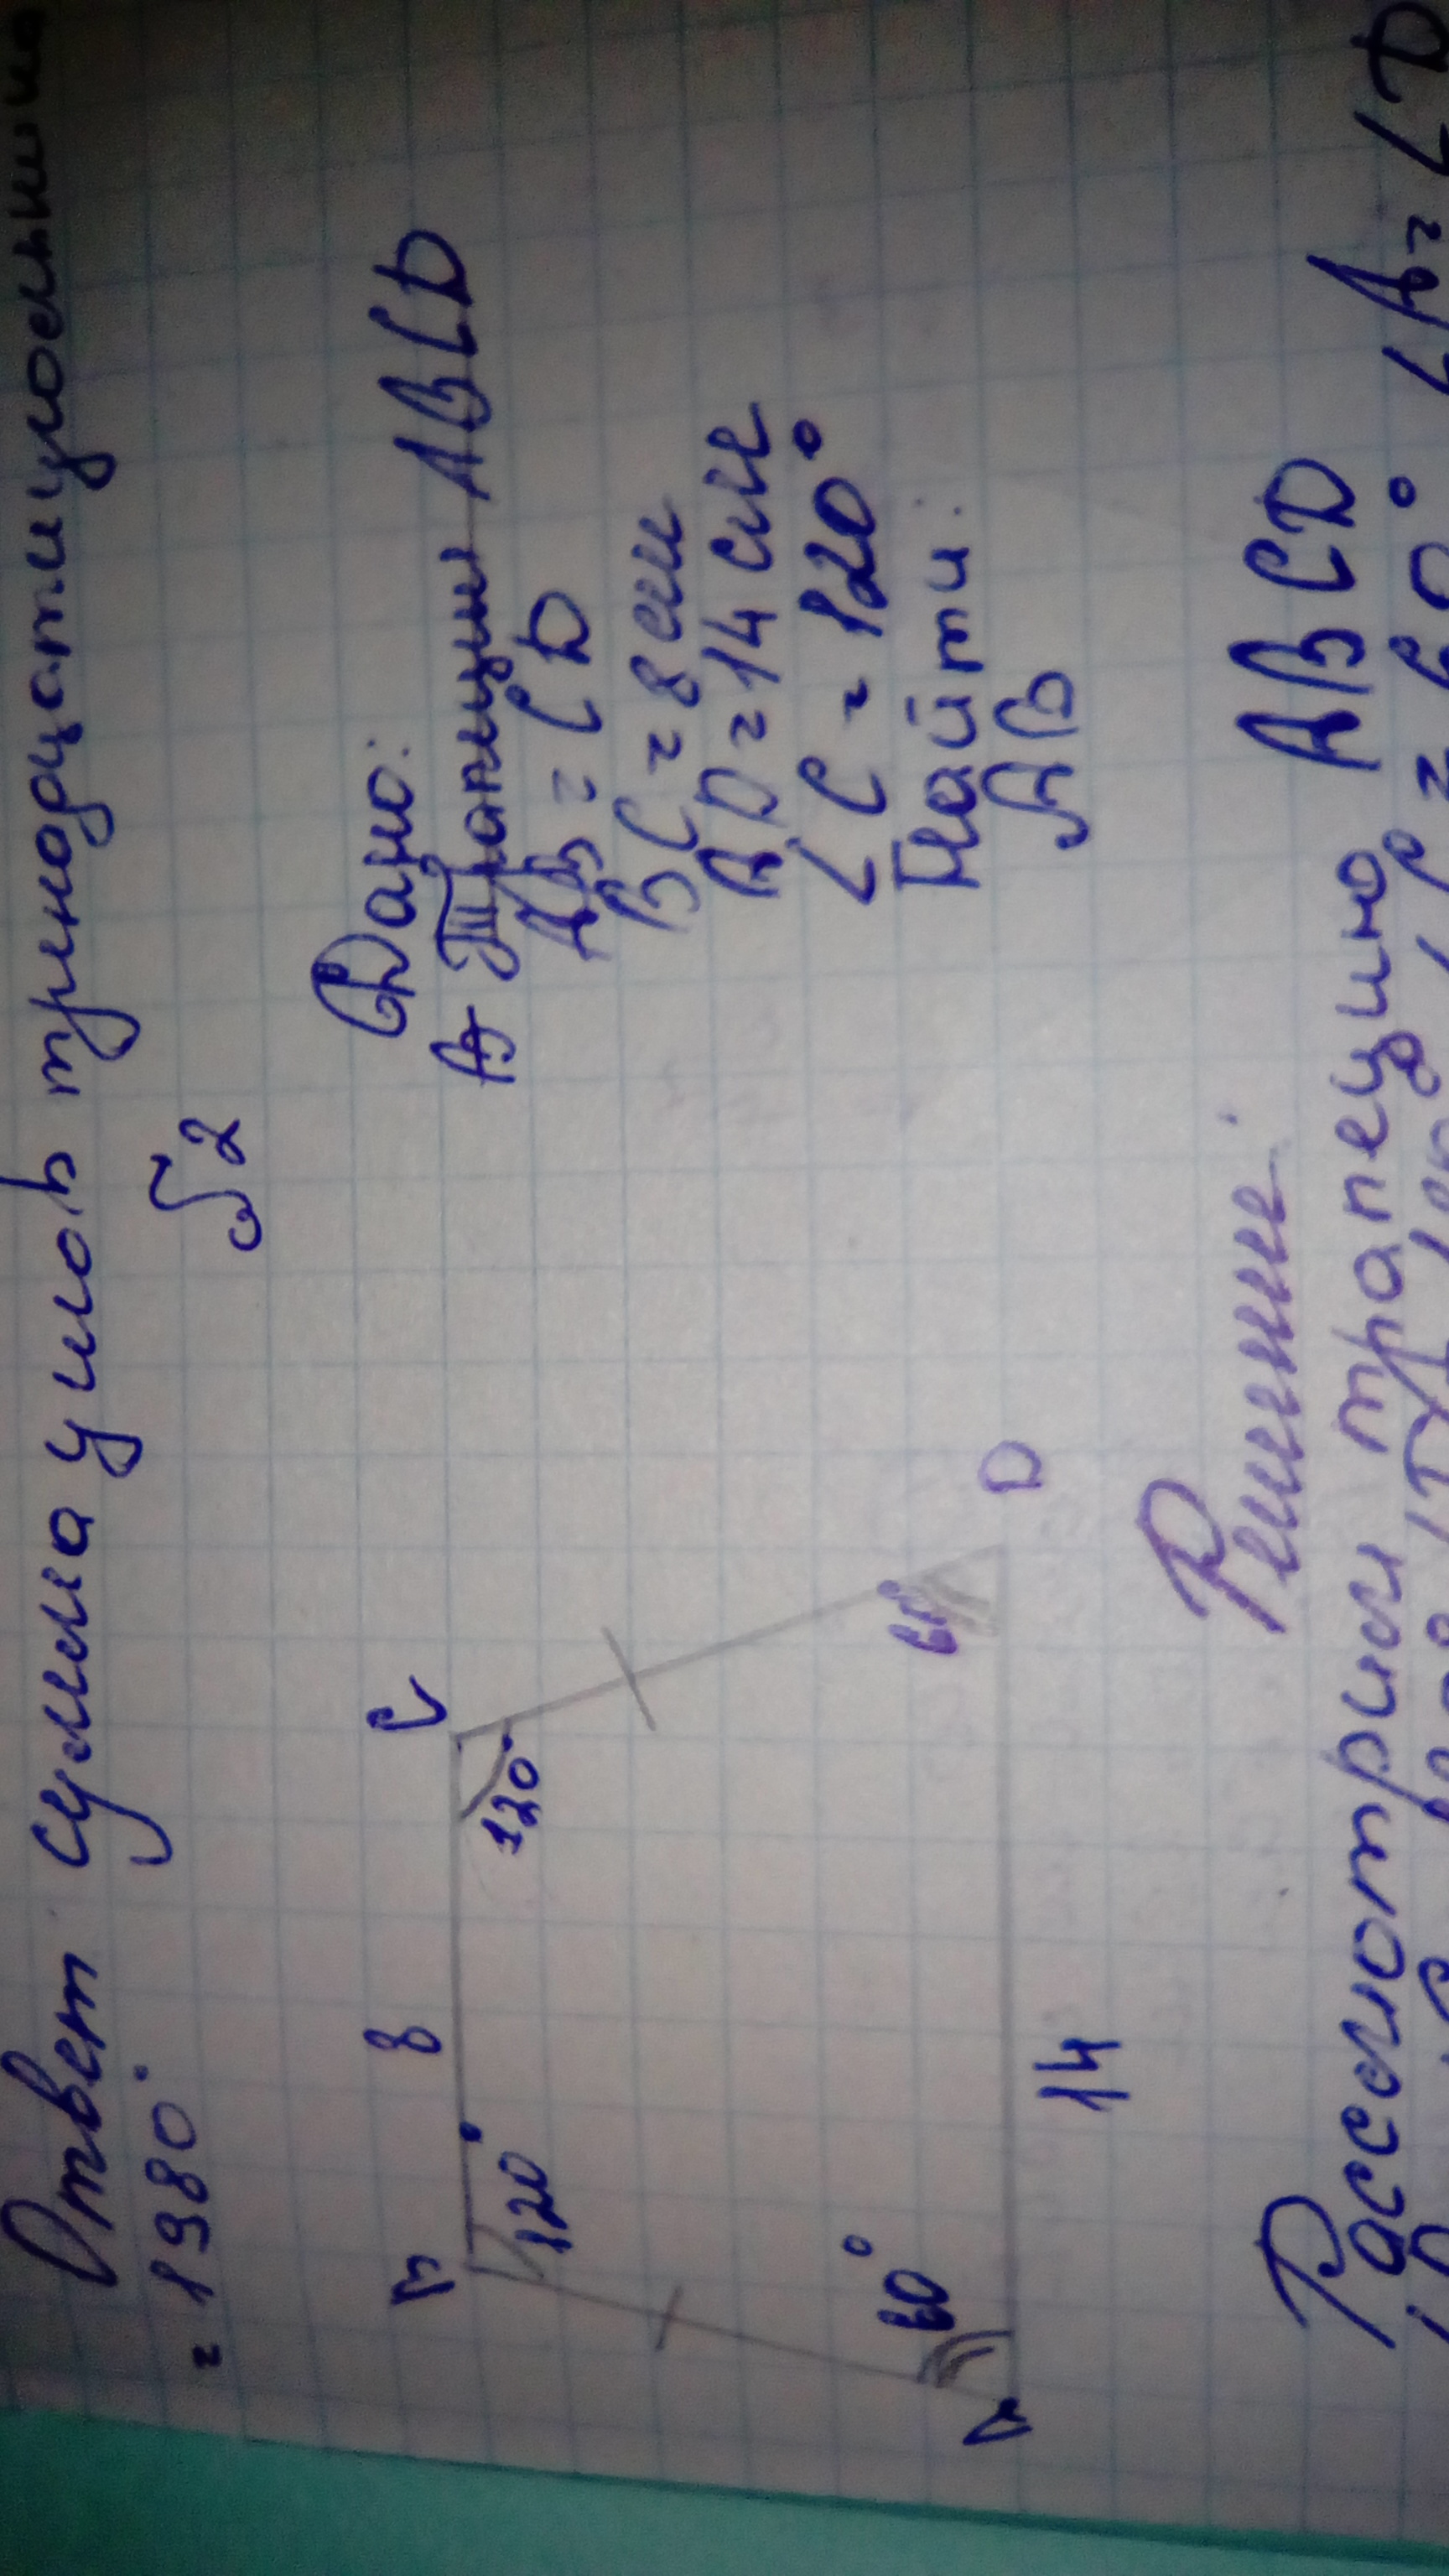 Ответ: сумма углов тринадцатиугольника
= 1980°
№2
Дано:
Трапеция ABCD
AB = CD
BC = 8 см
AD = 14 см
∠C = 120°
Найти:
AB
B 8 C
120° 120°
60° 60°
A 14 D
Решение.
Рассмотрим трапецию ABCD
∠A = ∠D
= 60°